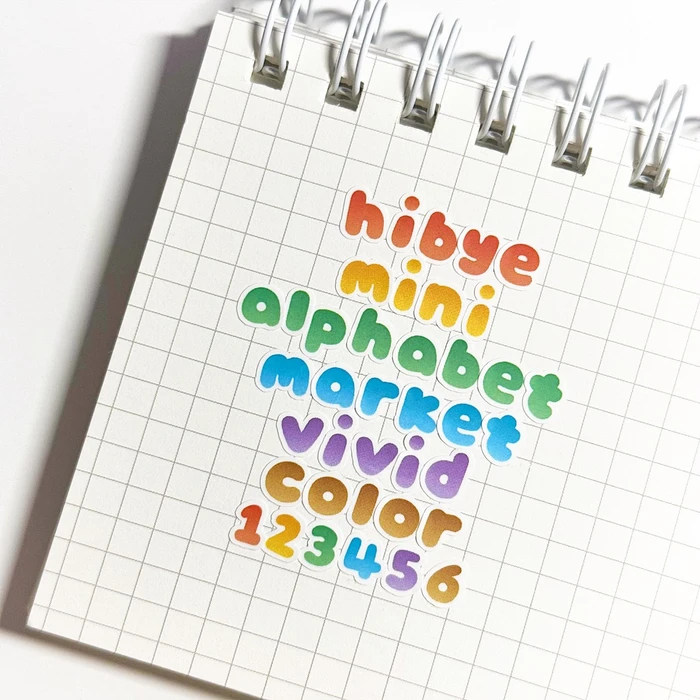 hibye
mini
alphabet
market
vivid
color
123456